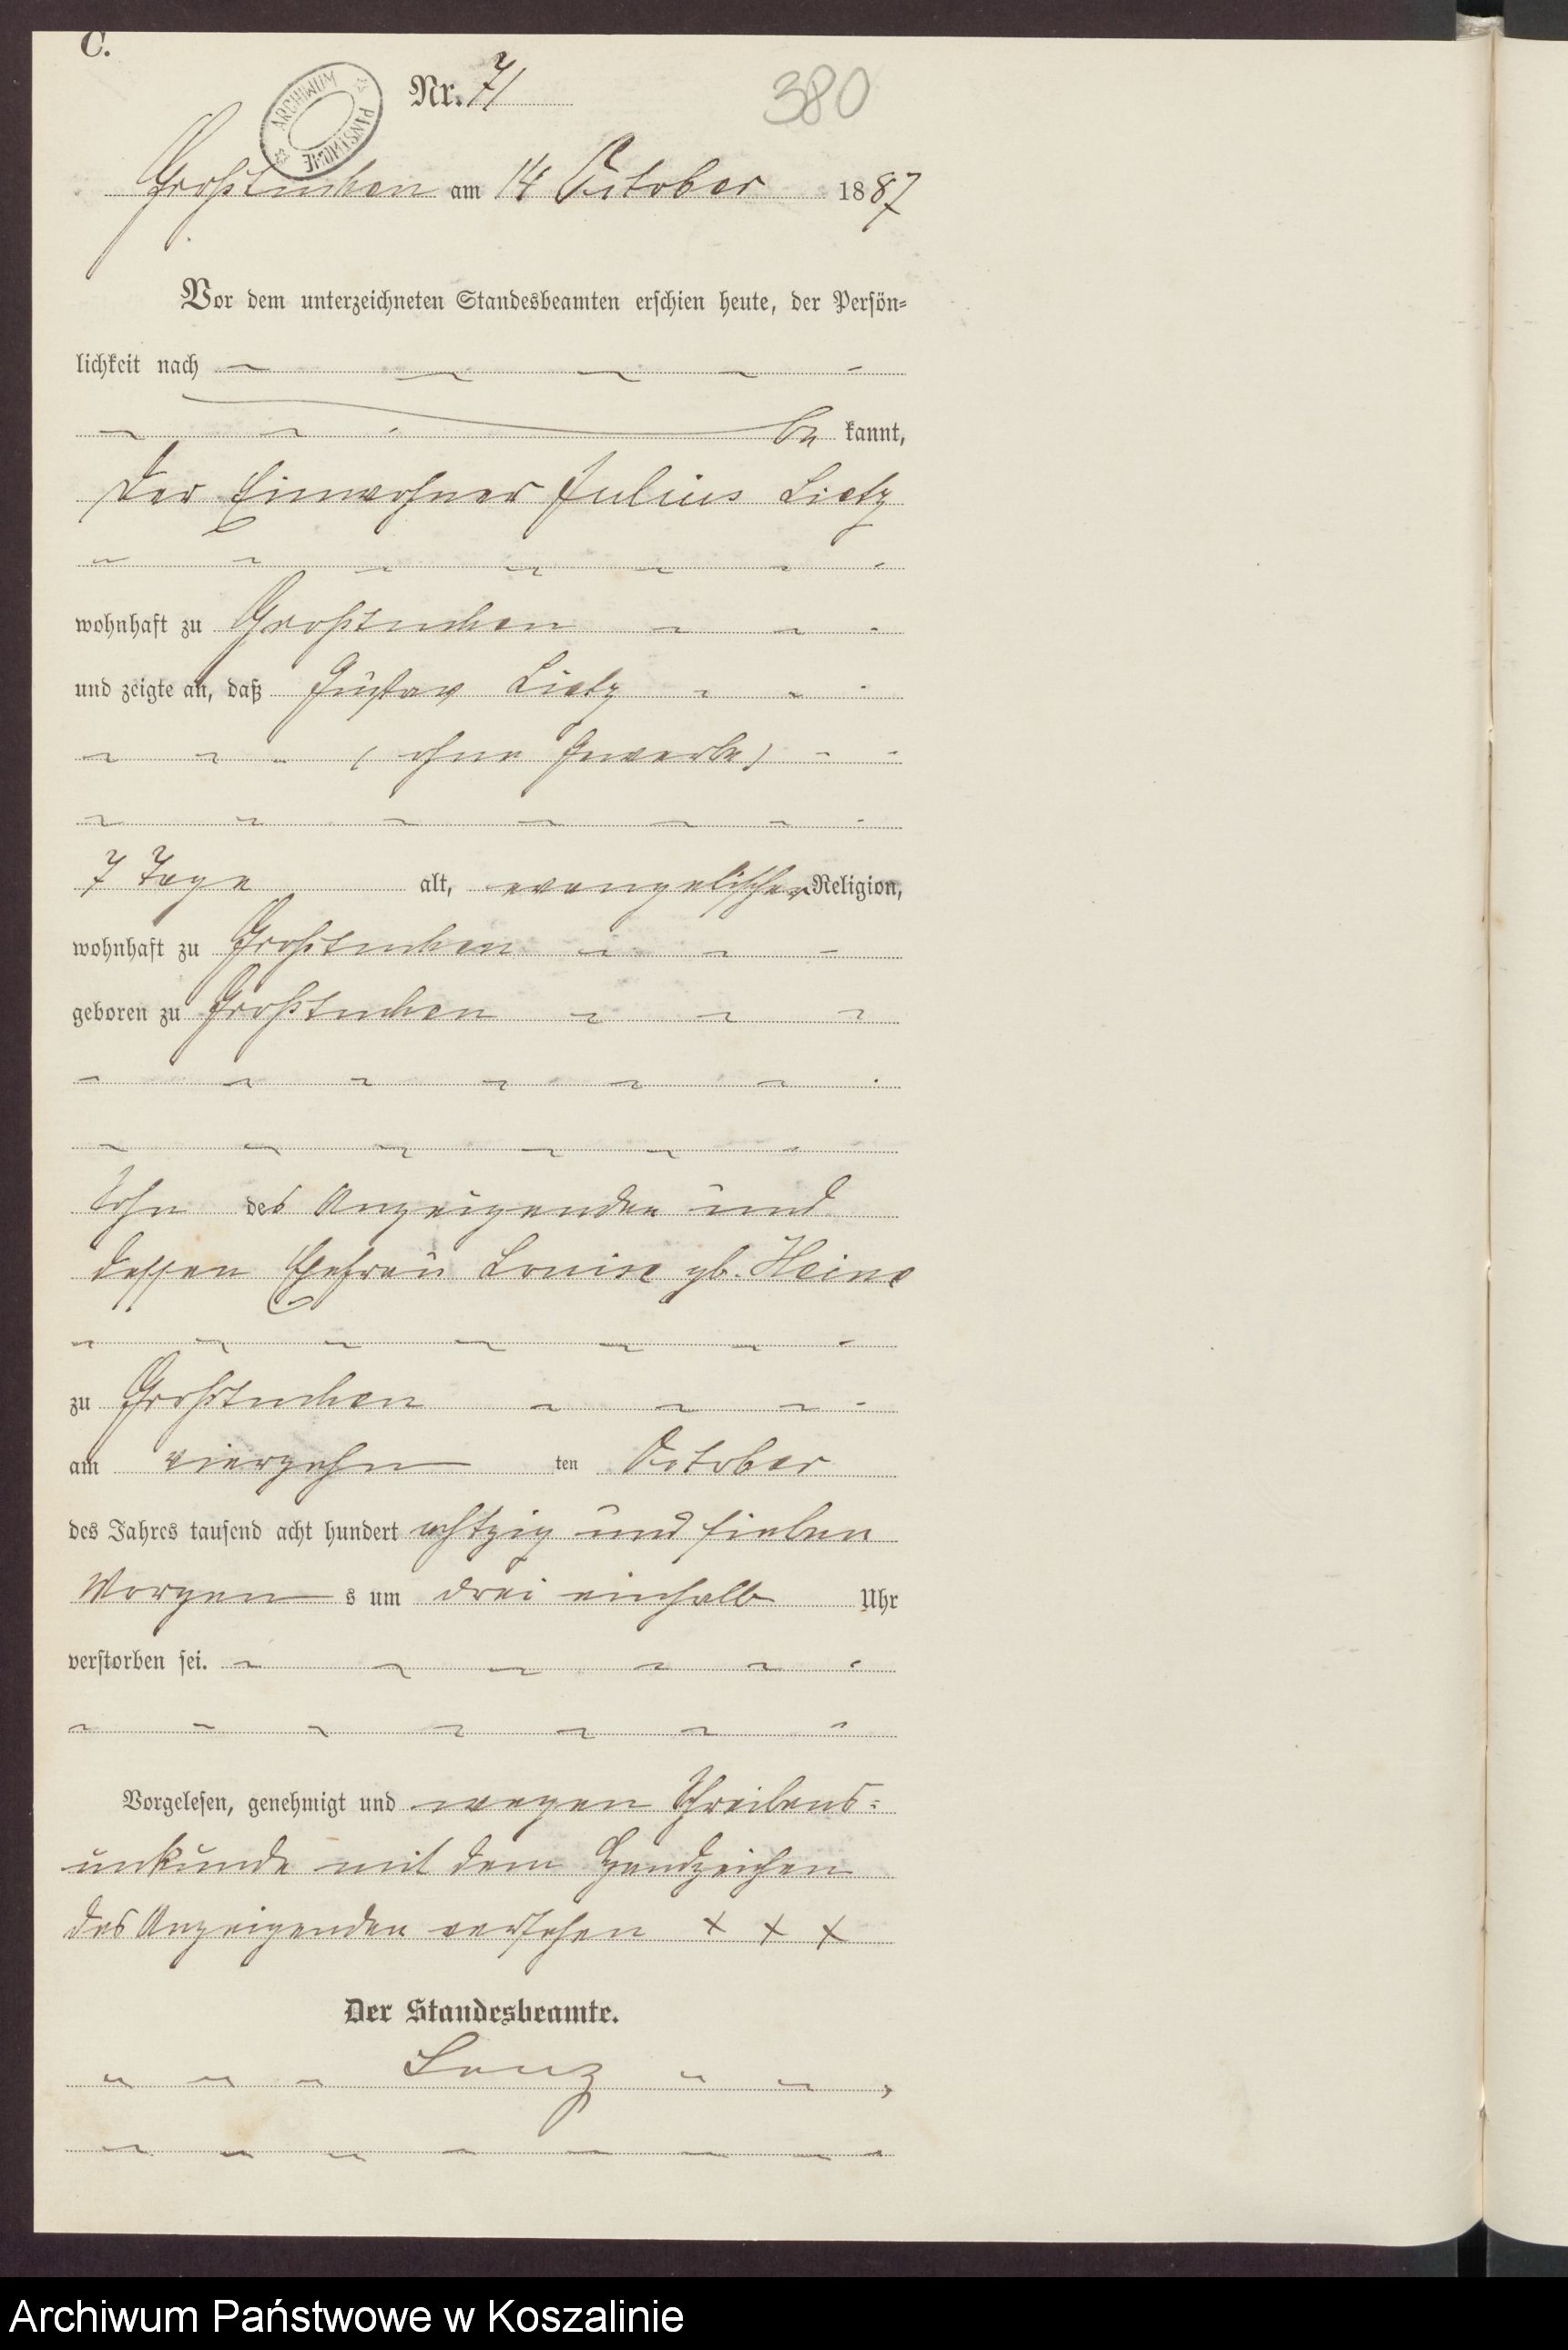 C.
Nr. 71
380
ARCHIWUM PAŃSTWOWE
Großtuchen am 14 October 1887
Vor dem unterzeichneten Standesbeamten erschien heute, der Persön=
lichkeit nach
be kannt,
der Einwohner Julius Lietz
wohnhaft zu Großtuchen
und zeigte an, daß Gustav Lietz
(ohne Gewerbe)
7 Tage alt, evangelischer Religion,
wohnhaft zu Großtuchen
geboren zu Großtuchen
Sohn des Anzeigenden und
dessen Ehefrau Louise gb. Heine
zu Großtuchen
am vierzehn ten October
des Jahres tausend acht hundert achtzig und sieben
Morgen s um drei einhalb Uhr
verstorben sei.
Vorgelesen, genehmigt und wegen Schreibens=
unkunde mit dem Handzeichen
des Anzeigenden versehen + + +
Der Standesbeamte.
Lenz
Archiwum Państwowe w Koszalinie